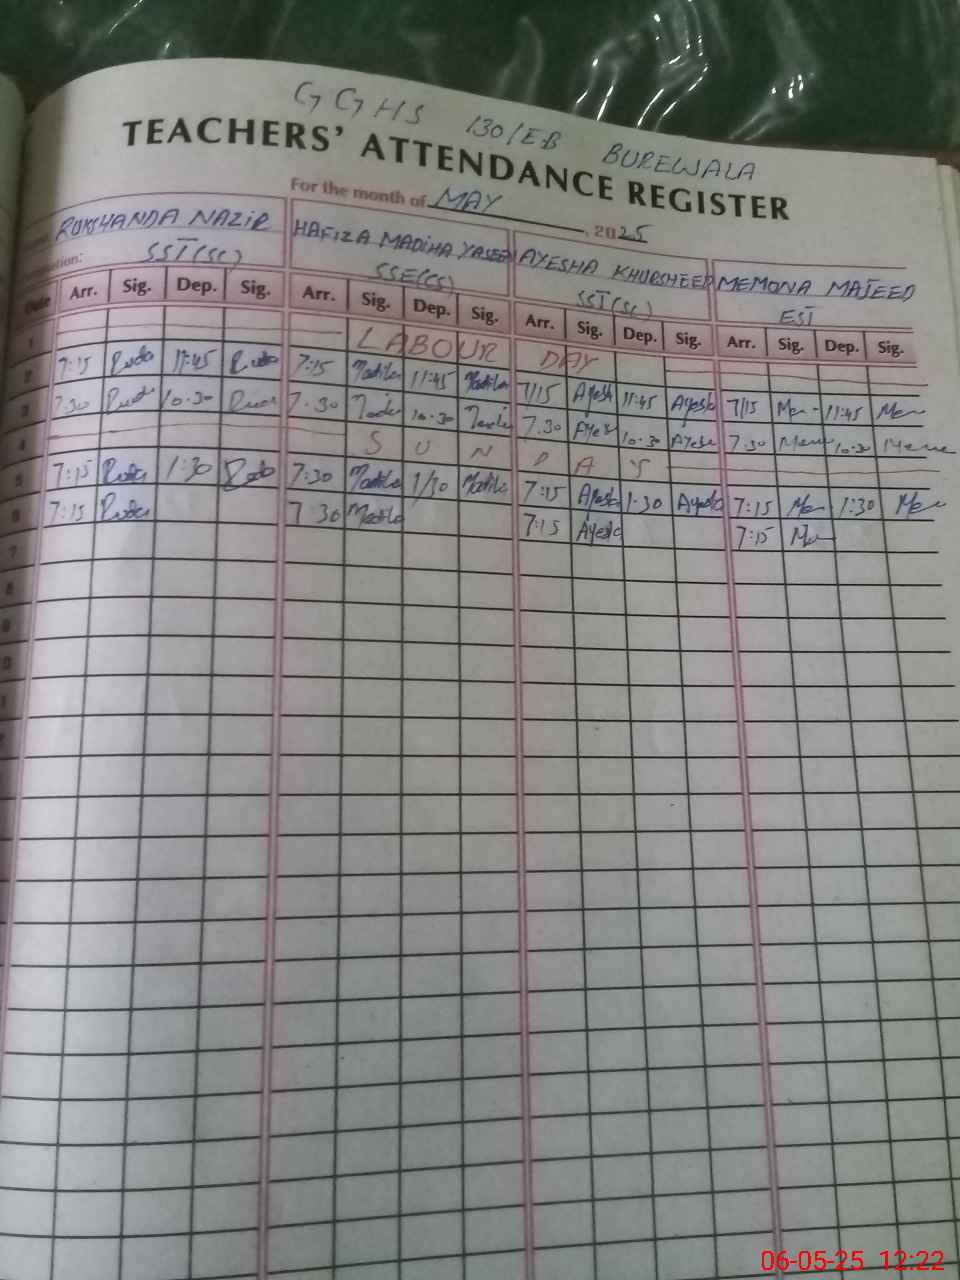 GGHS 130/EB BUREWALA
TEACHERS' ATTENDANCE REGISTER
For the month of MAY, 2025
RUKSHANDA NAZIR HAFIZA MADIHA YASEEN AYESHA KHURSHEED MEMONA MAJEED
SST(SC) SSE(CS) SST(SC) EST
Date Arr. Sig. Dep. Sig. Arr. Sig. Dep. Sig. Arr. Sig. Dep. Sig. Arr. Sig. Dep. Sig.
1 LABOUR DAY
2 7:15 11:45 7:15 Madiha 11:45 Madiha 7/15 Ayesha 11:45 Ayesha 7/15 11:45
3 7.30 10.30 7.30 10.30 7.30 Ayesha 10.30 Ayesha 7.30 10:30
4 SUNDAY
5 7:15 1:30 7:30 Madiha 1/30 Madiha 7:15 Ayesha 1:30 Ayesha 7:15 1:30
6 7:15 7:30 Madiha 7:15 Ayesha 7:15
7
8
9
06-05-25 12:22